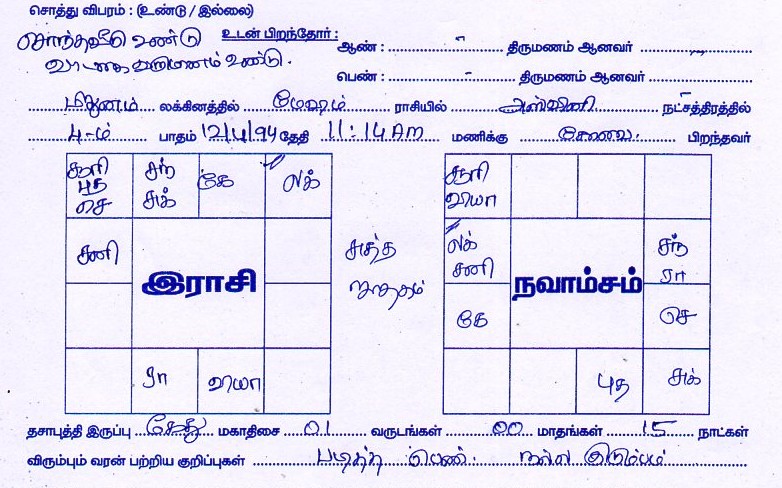 சொத்து விபரம் : (உண்டு / இல்லை)
சொந்தவீடு உண்டு உடன் பிறந்தோர் : ஆண் : - திருமணம் ஆனவர் -
வாடகை வருமானம் உண்டு. பெண் : - திருமணம் ஆனவர் -
மிதுனம் லக்கினத்தில் மேஷம் ராசியில் அஸ்வினி நட்சத்திரத்தில்
4-ம் பாதம் 12/4/94 தேதி 11:14 Am மணிக்கு கோவை பிறந்தவர்
சூரி புத செ
சந் சுக்
கே
லக்
சனி
இராசி
ரா
வியா
சுத்த ஜாதகம்
சூரி வியா
லக் சனி
நவாம்சம்
சந் ரா
கே
செ
புத
சுக்
தசாபுத்தி இருப்பு கேது மகாதிசை 01 வருடங்கள் 00 மாதங்கள் 15 நாட்கள்
விரும்பும் வரன் பற்றிய குறிப்புகள் படித்த பெண். நல்ல குடும்பம்